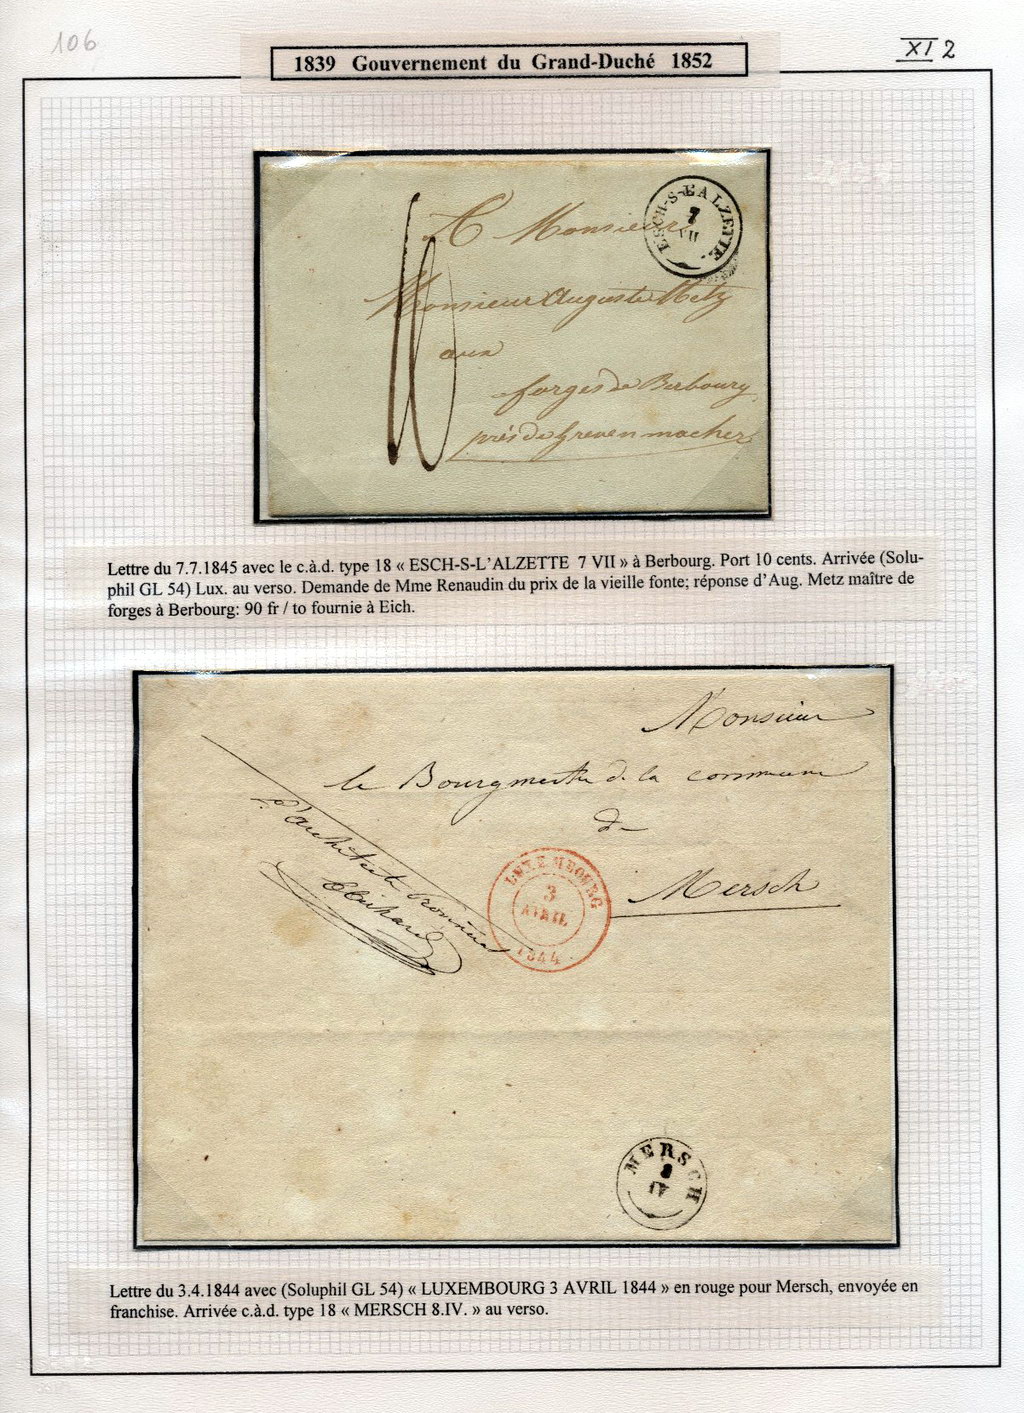 106
XI 2
1839 Gouvernement du Grand-Duché 1852
ESCH-S-L'ALZETTE.
7
VII
A Monsieur
Monsieur Auguste Metz
aux
forges de Berbourg
près de Grevenmacher
10
Lettre du 7.7.1845 avec le c.à.d. type 18 « ESCH-S-L'ALZETTE 7 VII » à Berbourg. Port 10 cents. Arrivée (Solu-
phil GL 54) Lux. au verso. Demande de Mme Renaudin du prix de la vieille fonte; réponse d'Aug. Metz maître de
forges à Berbourg: 90 fr / to fournie à Eich.
Monsieur
le Bourgmestre de la commune
de
Mersch
L'architecte
LUXEMBOURG
3
AVRIL
1844
MERSCH
8
IV
Lettre du 3.4.1844 avec (Soluphil GL 54) « LUXEMBOURG 3 AVRIL 1844 » en rouge pour Mersch, envoyée en
franchise. Arrivée c.à.d. type 18 « MERSCH 8.IV. » au verso.